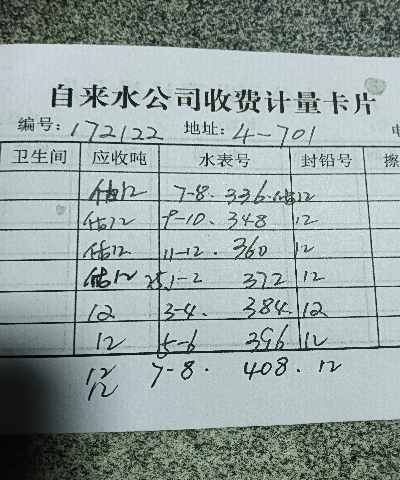 自来水公司收费计量卡片
编号:172122 地址:4-701 电
卫生间 应收吨 水表号 封铅号 擦
估12 7-8. 336. 估12
估12 9-10. 348 12
估12 11-12. 360 12
估12 25.1-2 372 12
12 3-4. 384. 12
12 5-6 396 12
12 7-8. 408. 12
12